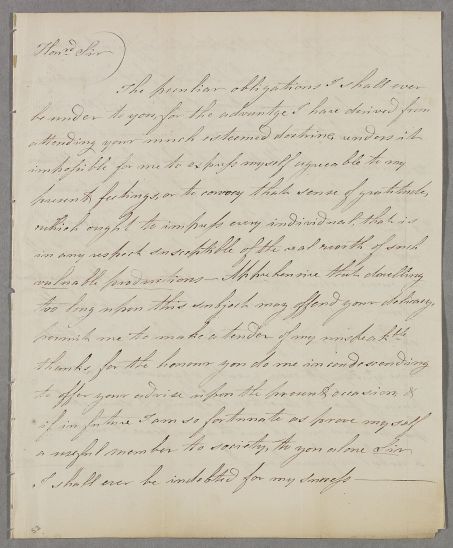 Hon.rd Sir
The peculiar obligations I shall ever
be under to you, for the advantge I have derived from
attending your much esteemed doctrine, renders it
impossible for me to express myself agreeable to my
present feelings, or to convey that sense of gratitude,
which ought to impress every individual, that is
in any respect susceptible of the real worth of such
valuable productions— Apprehensive that dwelling
too long upon this subject may offend your delicacy,
permit me to make a tender of my unspeakble
thanks, for the honour you do me in condescending
to offer your advise upon the present occasion, &
if in future I am so fortunate as prove myself
a useful member to society, to you alone Sir
I shall ever be indebted for my success —